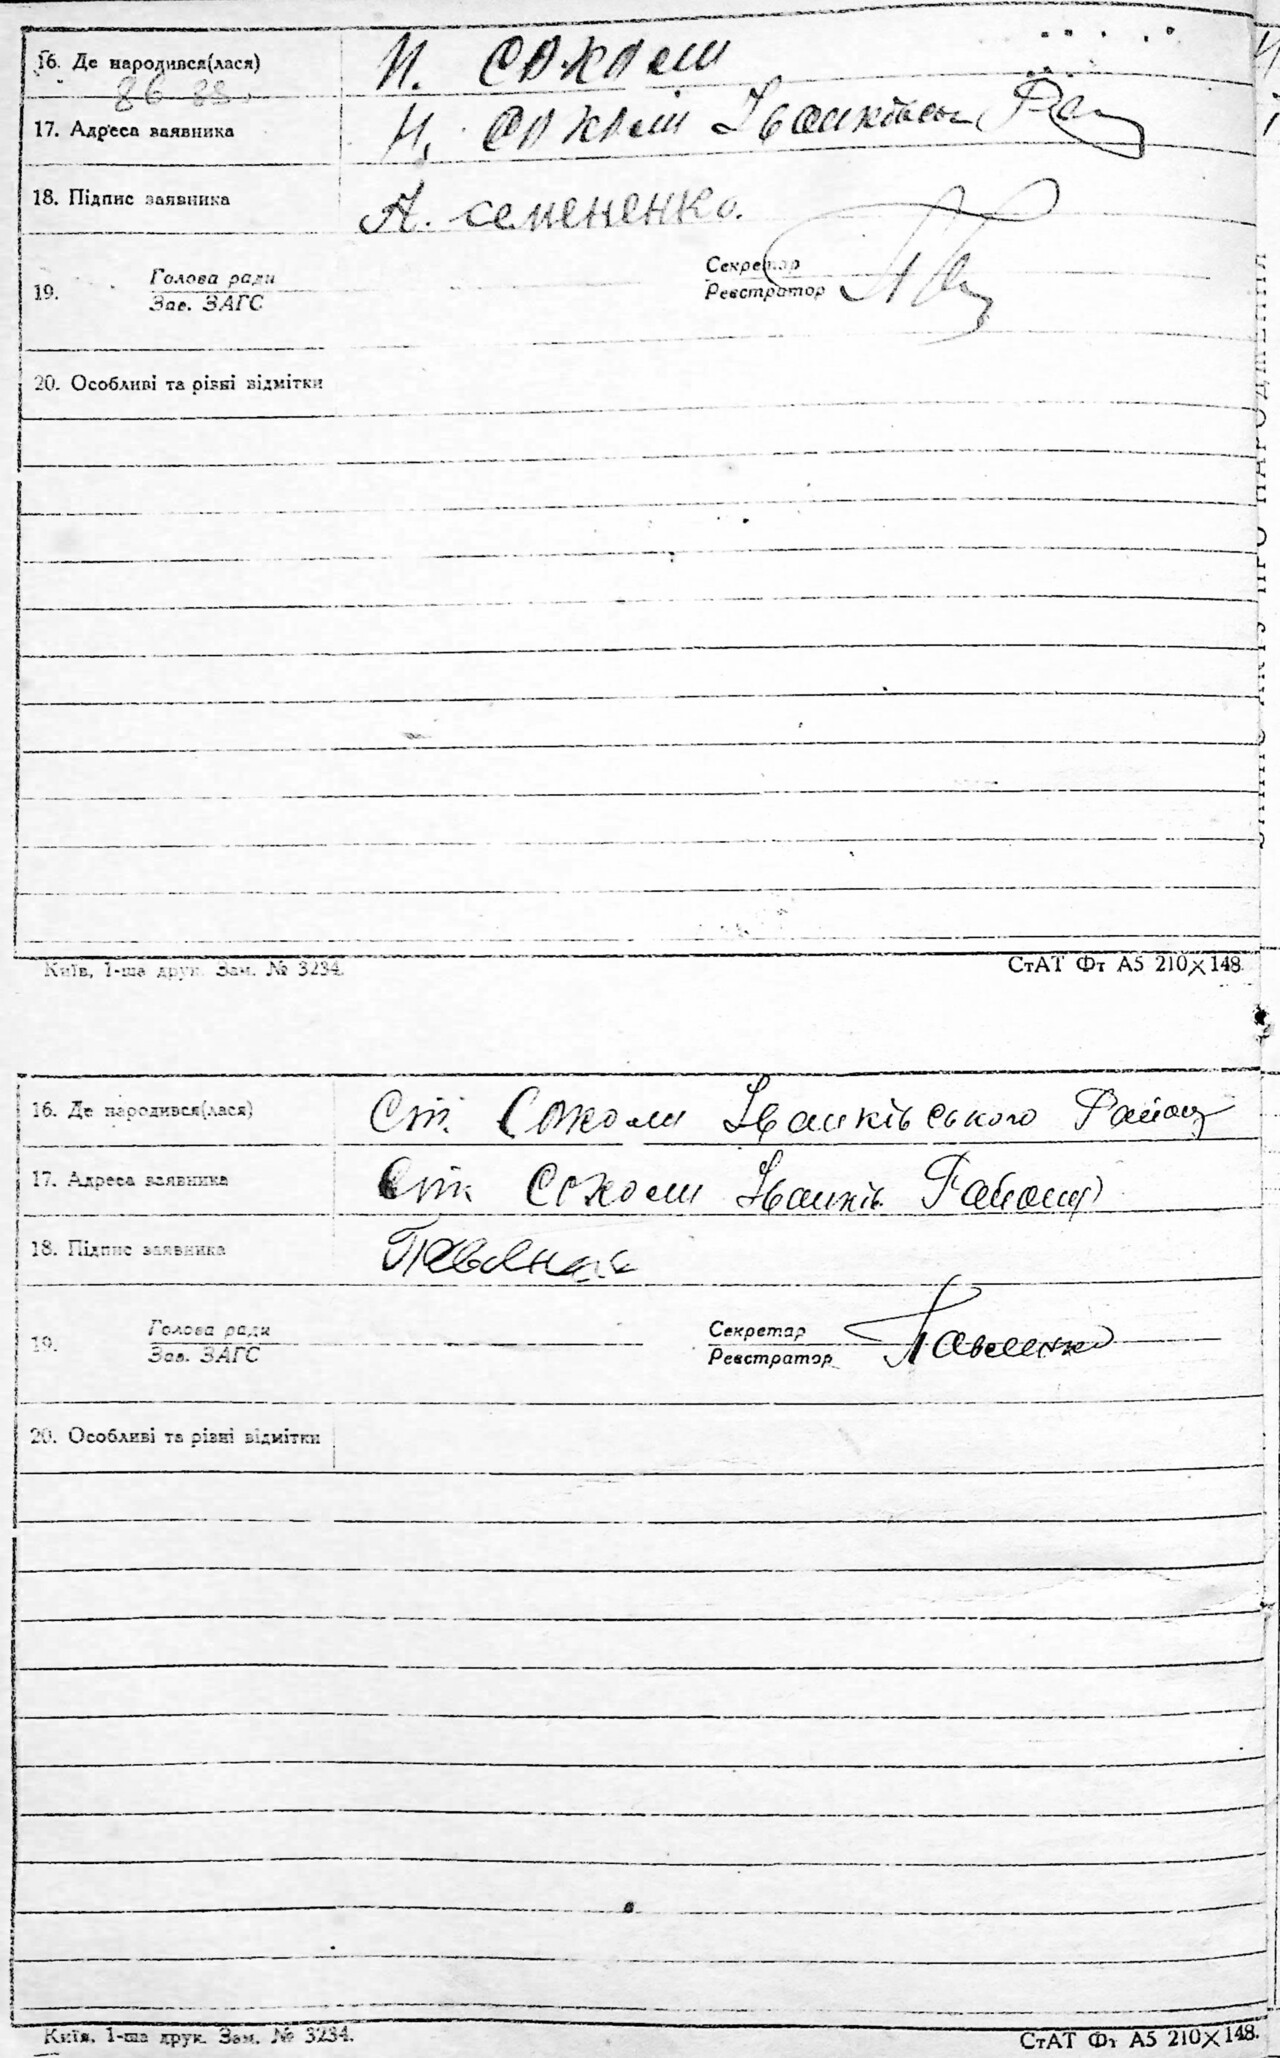 16. Де народився(лася) И. Соколи
86 88.
17. Адреса заявника И. Соколи Іванківськ Ра
18. Підпис заявника А. семененко.
19. Голова ради Зав. ЗАГС Секретар Реєстратор
20. Особливі та різні відмітки
Київ, 1-ша друк. Зам. № 3234.
СтАТ Фт А5 210×148
16. Де народився(лася) Соколи Іванківського Району
17. Адреса заявника Соколи Іванків. Району
18. Підпис заявника
19. Голова ради Зав. ЗАГС Секретар Реєстратор Павленко
20. Особливі та різні відмітки
Київ, 1-ша друк. Зам. № 3234.
СтАТ Фт А5 210×148.